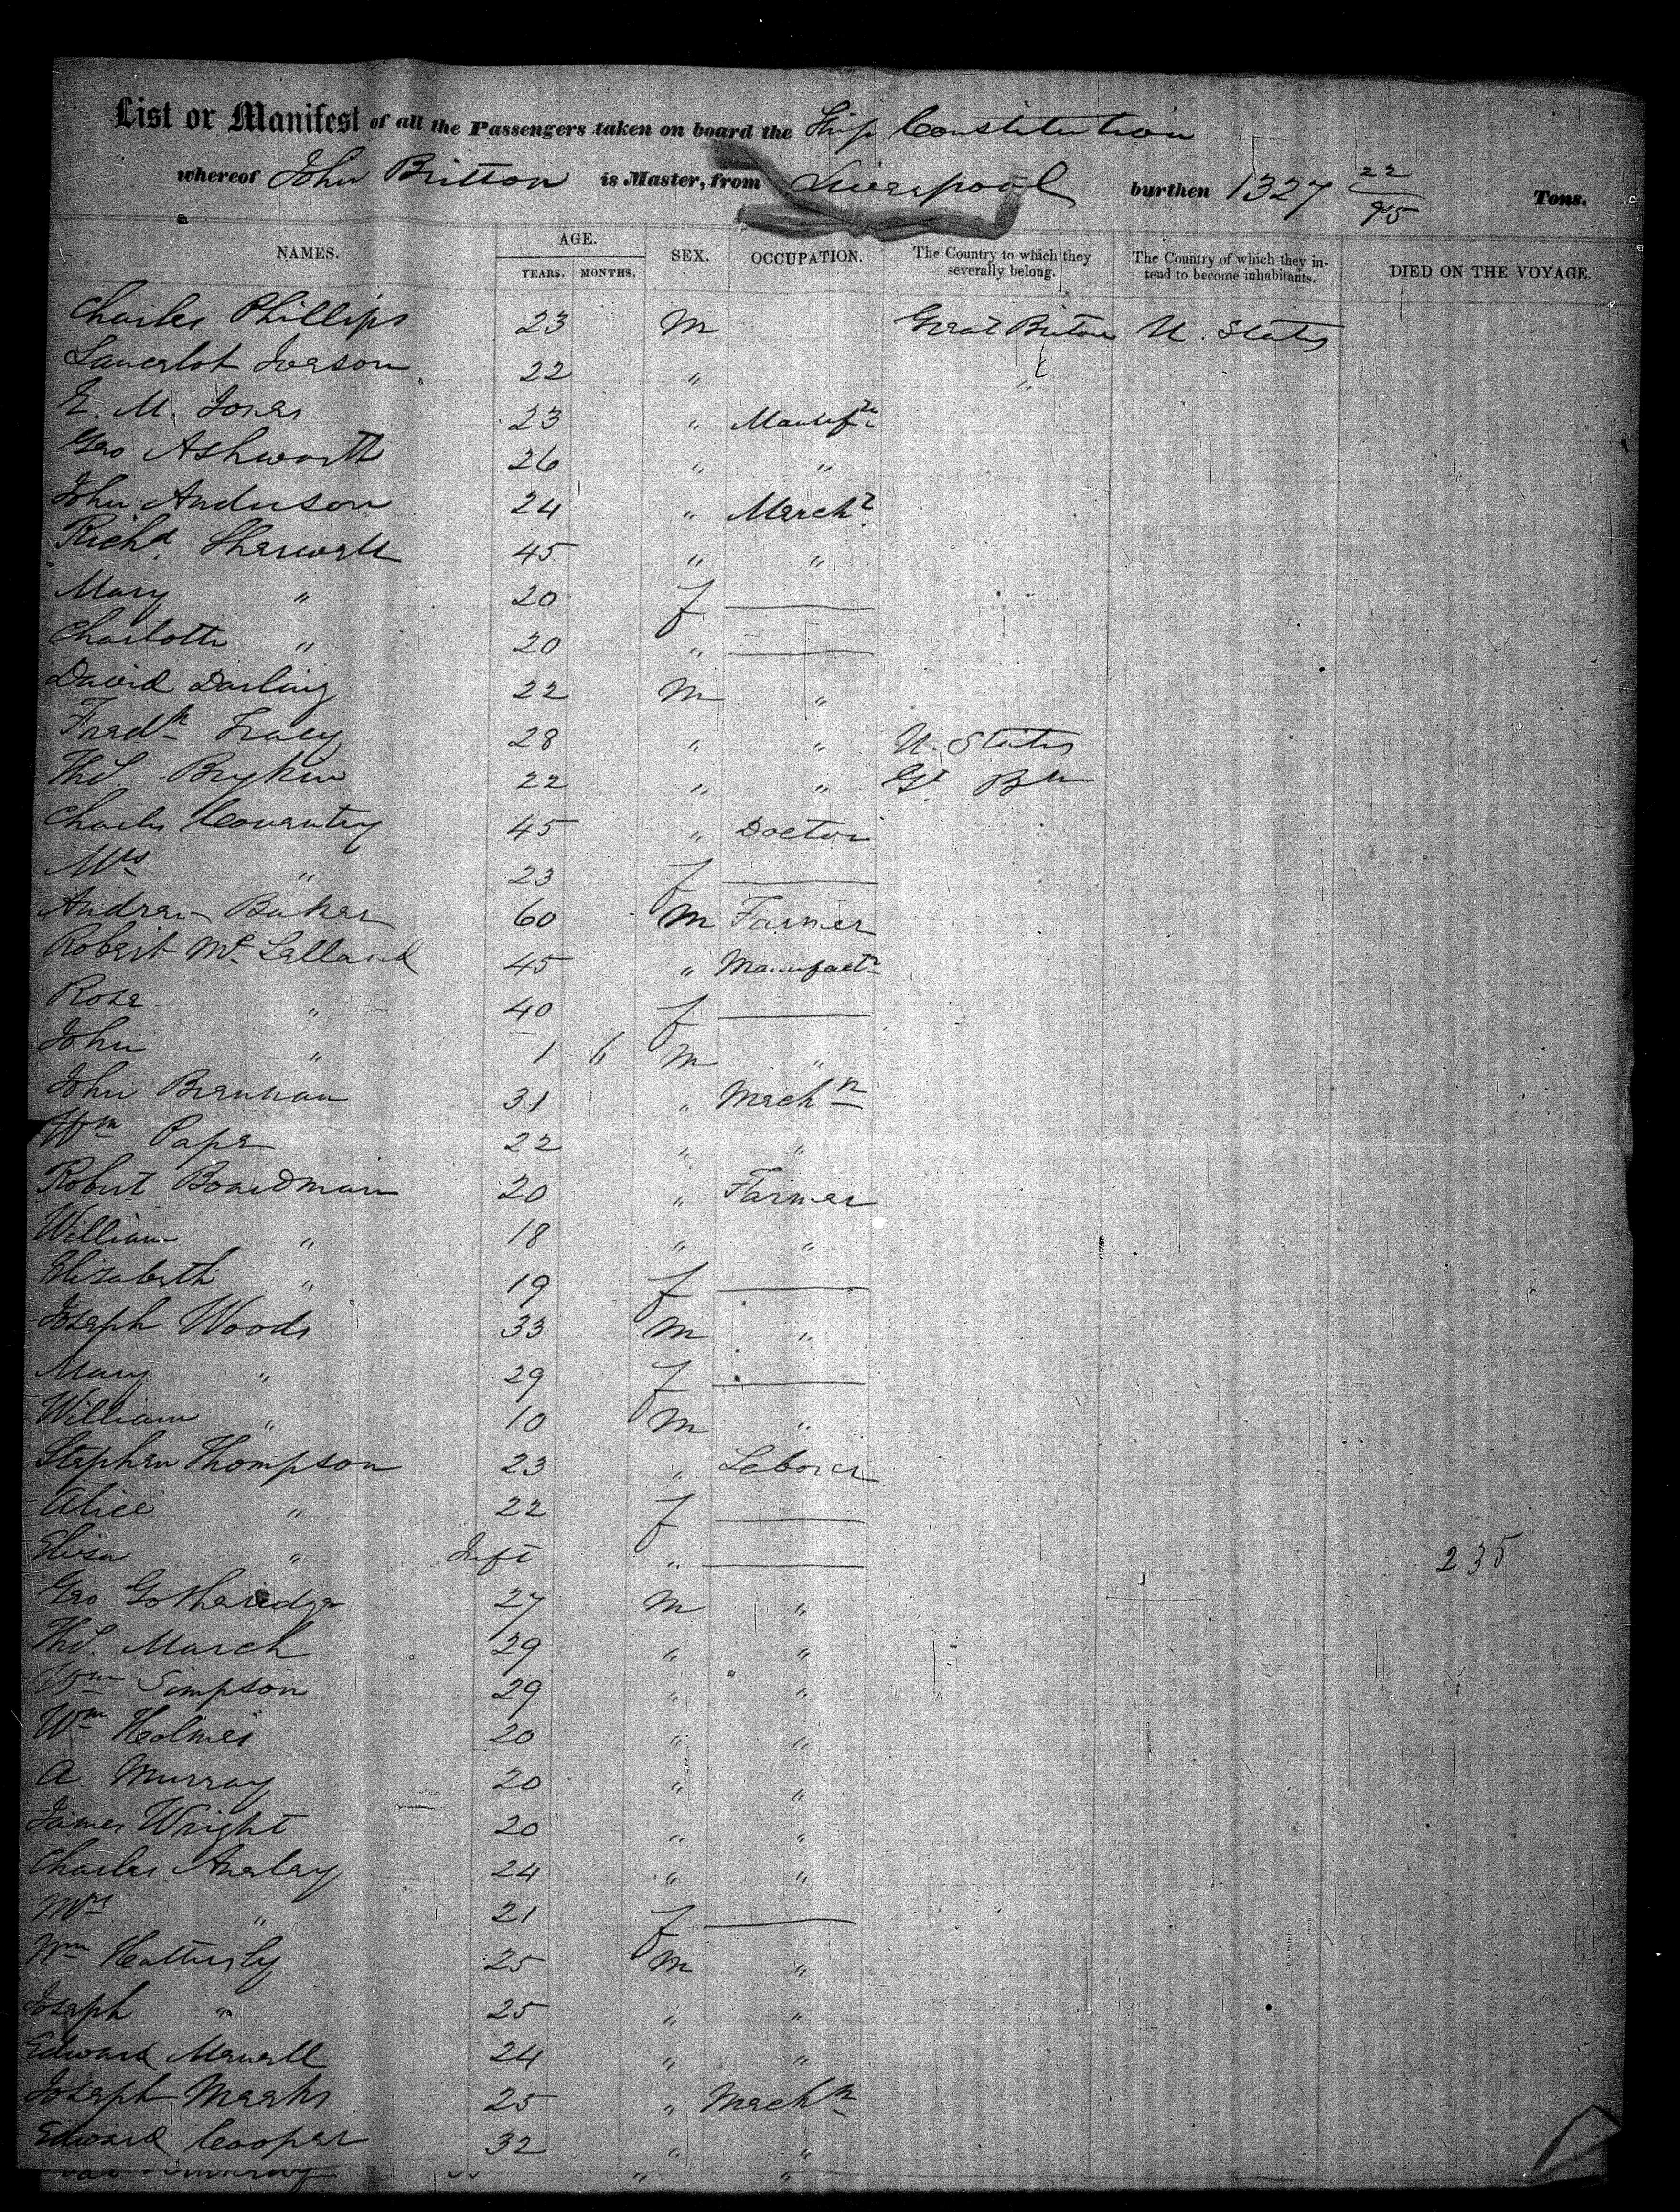 List or Manifest of all the Passengers taken on board the Ship Constitution
whereof John Britton is Master, from Liverpool burthen 1327 22/95 Tons.
NAMES. AGE. SEX. OCCUPATION. The Country to which they severally belong. The Country of which they intend to become inhabitants. DIED ON THE VOYAGE.
YEARS. MONTHS.
Charles Phillips 23 M Great Britain U. States
Lancelot Iverson 22 " "
E. M. Jones 23 " Manufr
Geo Ashworth 26 " "
John Anderson 24 " Mercht
Richd. Sherwell 45 " "
Mary " 20 f
Charlotte " 20 "
David Darling 22 M "
Fredk Tracy 28 " " U. States
Ths. 22 " " Gt Bn
Charles Coventry 45 " Doctor
Mrs " 23 f
Andrew Baker 60 M Farmer
Robert Mc Lelland 45 " Manufactr
Rose " 40 f
John " 1 6 M "
John Brennan 31 " Mechn
Wm Pape 22 " "
Robert Boardman 20 " Farmer
William " 18 " "
Elizabeth " 19 f
Joseph Woods 33 M "
Mary " 29 f
William " 10 M "
Stephen Thompson 23 " Laborer
Alice " 22 f
Eliza " Inft " 235
Geo Gotheridge 27 M "
Ths. March 29 " "
Wm Simpson 29 " "
Wm Holmes 20 " "
A. Murray 20 " "
James Wright 20 " "
Charles Ansley 24 " "
Mrs " 21 f
Wm Hattersly 25 M "
Joseph " 25 " "
Edward Mewell 24 " "
Joseph Meeks 25 " Mechn
Edward Cooper 32 " "
" "